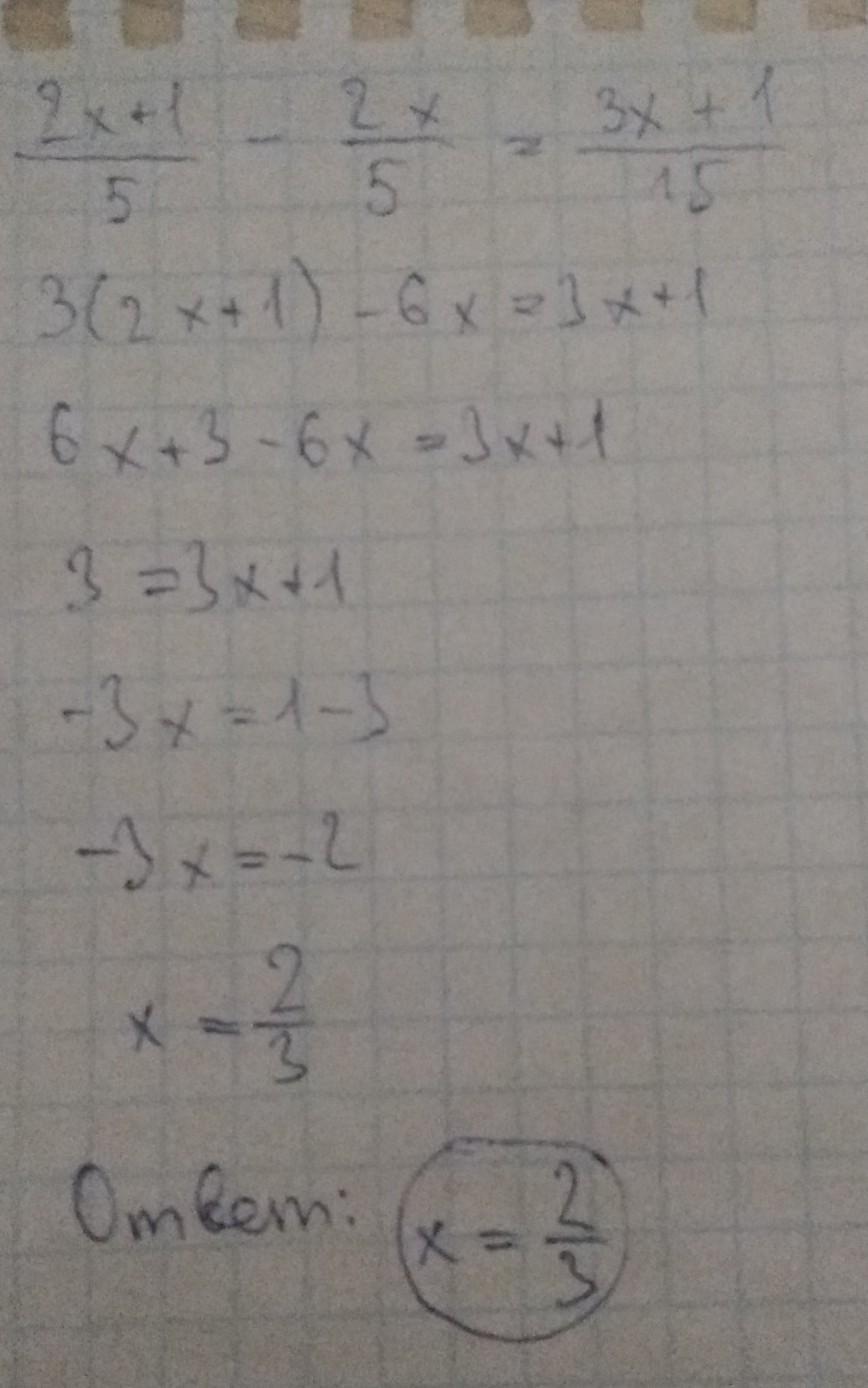 (2x+1)/5 - 2x/5 = (3x+1)/15
3(2x+1)-6x=3x+1
6x+3-6x=3x+1
3=3x+1
-3x=1-3
-3x=-2
x=2/3
Ответ: x=2/3